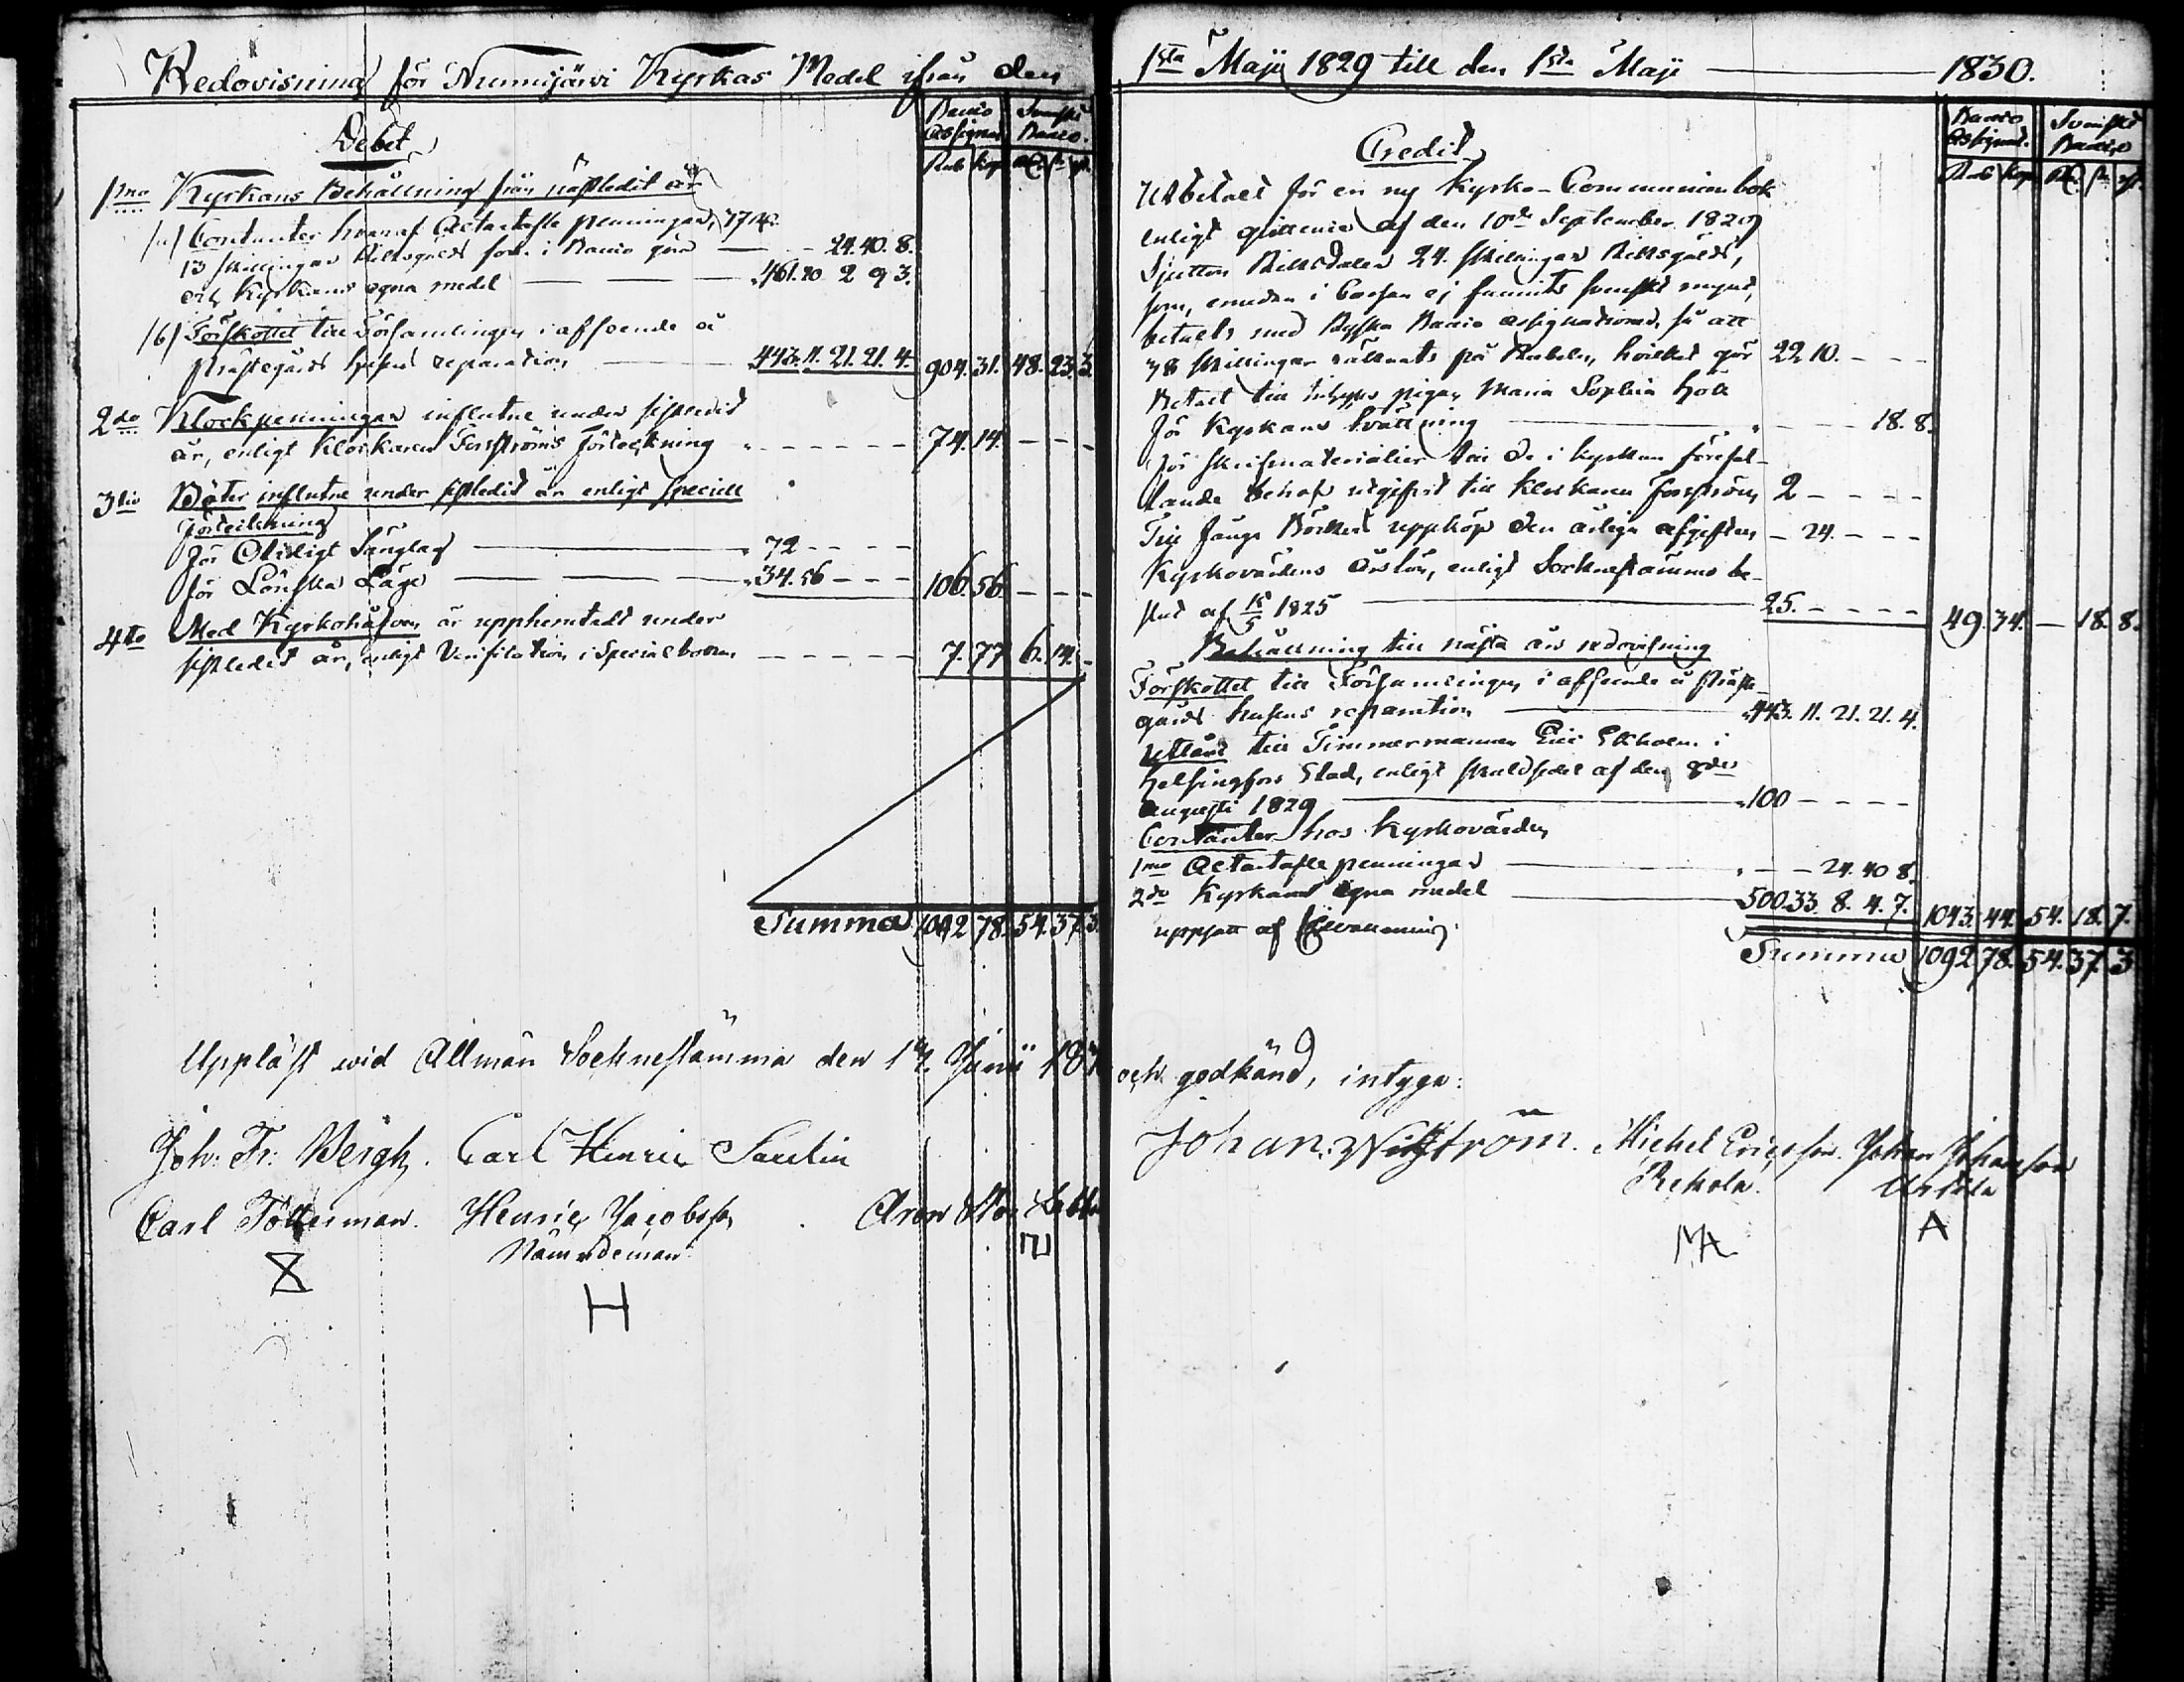 Redovisning för Nurmijärvi Kyrkas Medel ifrån den
Debet
Banco Assignat. Svenskt Banco.
Rub Kop Rd. sk. rst.
1mo Kyrkans Behållning från näst ledit år
(a) Contanter hvaraf Altartafle penningar, 37 Rd.
13 skillingar Riksgälds som i Banco gör 24. 40. 8.
och Kyrkans egna medel 461. 20 2 9 3.
(b) Förskottet till Församlingen i afseende å
Prästegårds husens reparation 443. 11. 21. 21. 4. 904. 31. 48. 23. 3
2do Klockpenningar influtne under sistledit
år, enligt Klockaren Forsströms förteckning 74. 14.
3tio Böter influtne under sistledit år enligt speciell
förteckning
För Olidligt Sänglag 72
för Lönska Läge 34. 56 106. 56
4to Med Kyrkohåfven är upphemtadt under
sistledit år, enligt Verification i Specialboken 7. 77 6. 14.
Summa 1092 78. 54. 37. 3.
Uppläst wid Allmän Sochnestämma den
Joh: Fr: Bergh. Carl Henric Saulin
Carl Tötterman. Henric Jacobsson Aron
Nämndeman
H
1sta Maji 1829 till den 1sta Maji 1830.
Credit
Banco Assignat. Svenskt Banco
Rub Kop Rd. sk. rst.
Utbetalt för en ny Kyrko-Communion bok
enligt qvittence af den 10de September 1829
Sjutton Riksdaler 24. skillingar Riksgälds,
som, emedan i Cassan ej funnits svenskt mynt,
betalts med Ryska Banco assignationer, så att
38 skillingar räknats på Rubeln, hvilket gör 22 10.
Betalt till Inhyses pigan Maria Sophia Holl
för Kyrkans tvättning 18. 8.
för skrifmaterialier till de i kyrkan förefal-
lande behof utgifvit till Klockaren Forsström 2
Till Fånge Börhed uppköp den årliga afgiften 24.
Kyrkovärdens årslön, enligt Sockenstämmo be-
slut af 15/5 1825 25. 49. 34. 18. 8.
Behållning till nästa års redovisning
Förskottet till Församlingen i afseende å Präste-
gårds husens reparation 443. 11. 21. 21. 4.
Utlånt till Timmermannen Eric Ekholm i
Helsingfors Stad, enligt skuldsedel af den
Augusti 1829 100
Contanter hos Kyrkovärden
1mo Altartafle penningar 24. 40 8.
2do Kyrkans egna medel 500. 33 8. 4. 7. 1043. 44. 54. 18. 7.
uppsatt af
Summa 1092 78. 54. 37. 3
och godkänd, intyga:
Johan Nyström. Michel Ericsson. Johan Johansson
Rekola. Uotila
A